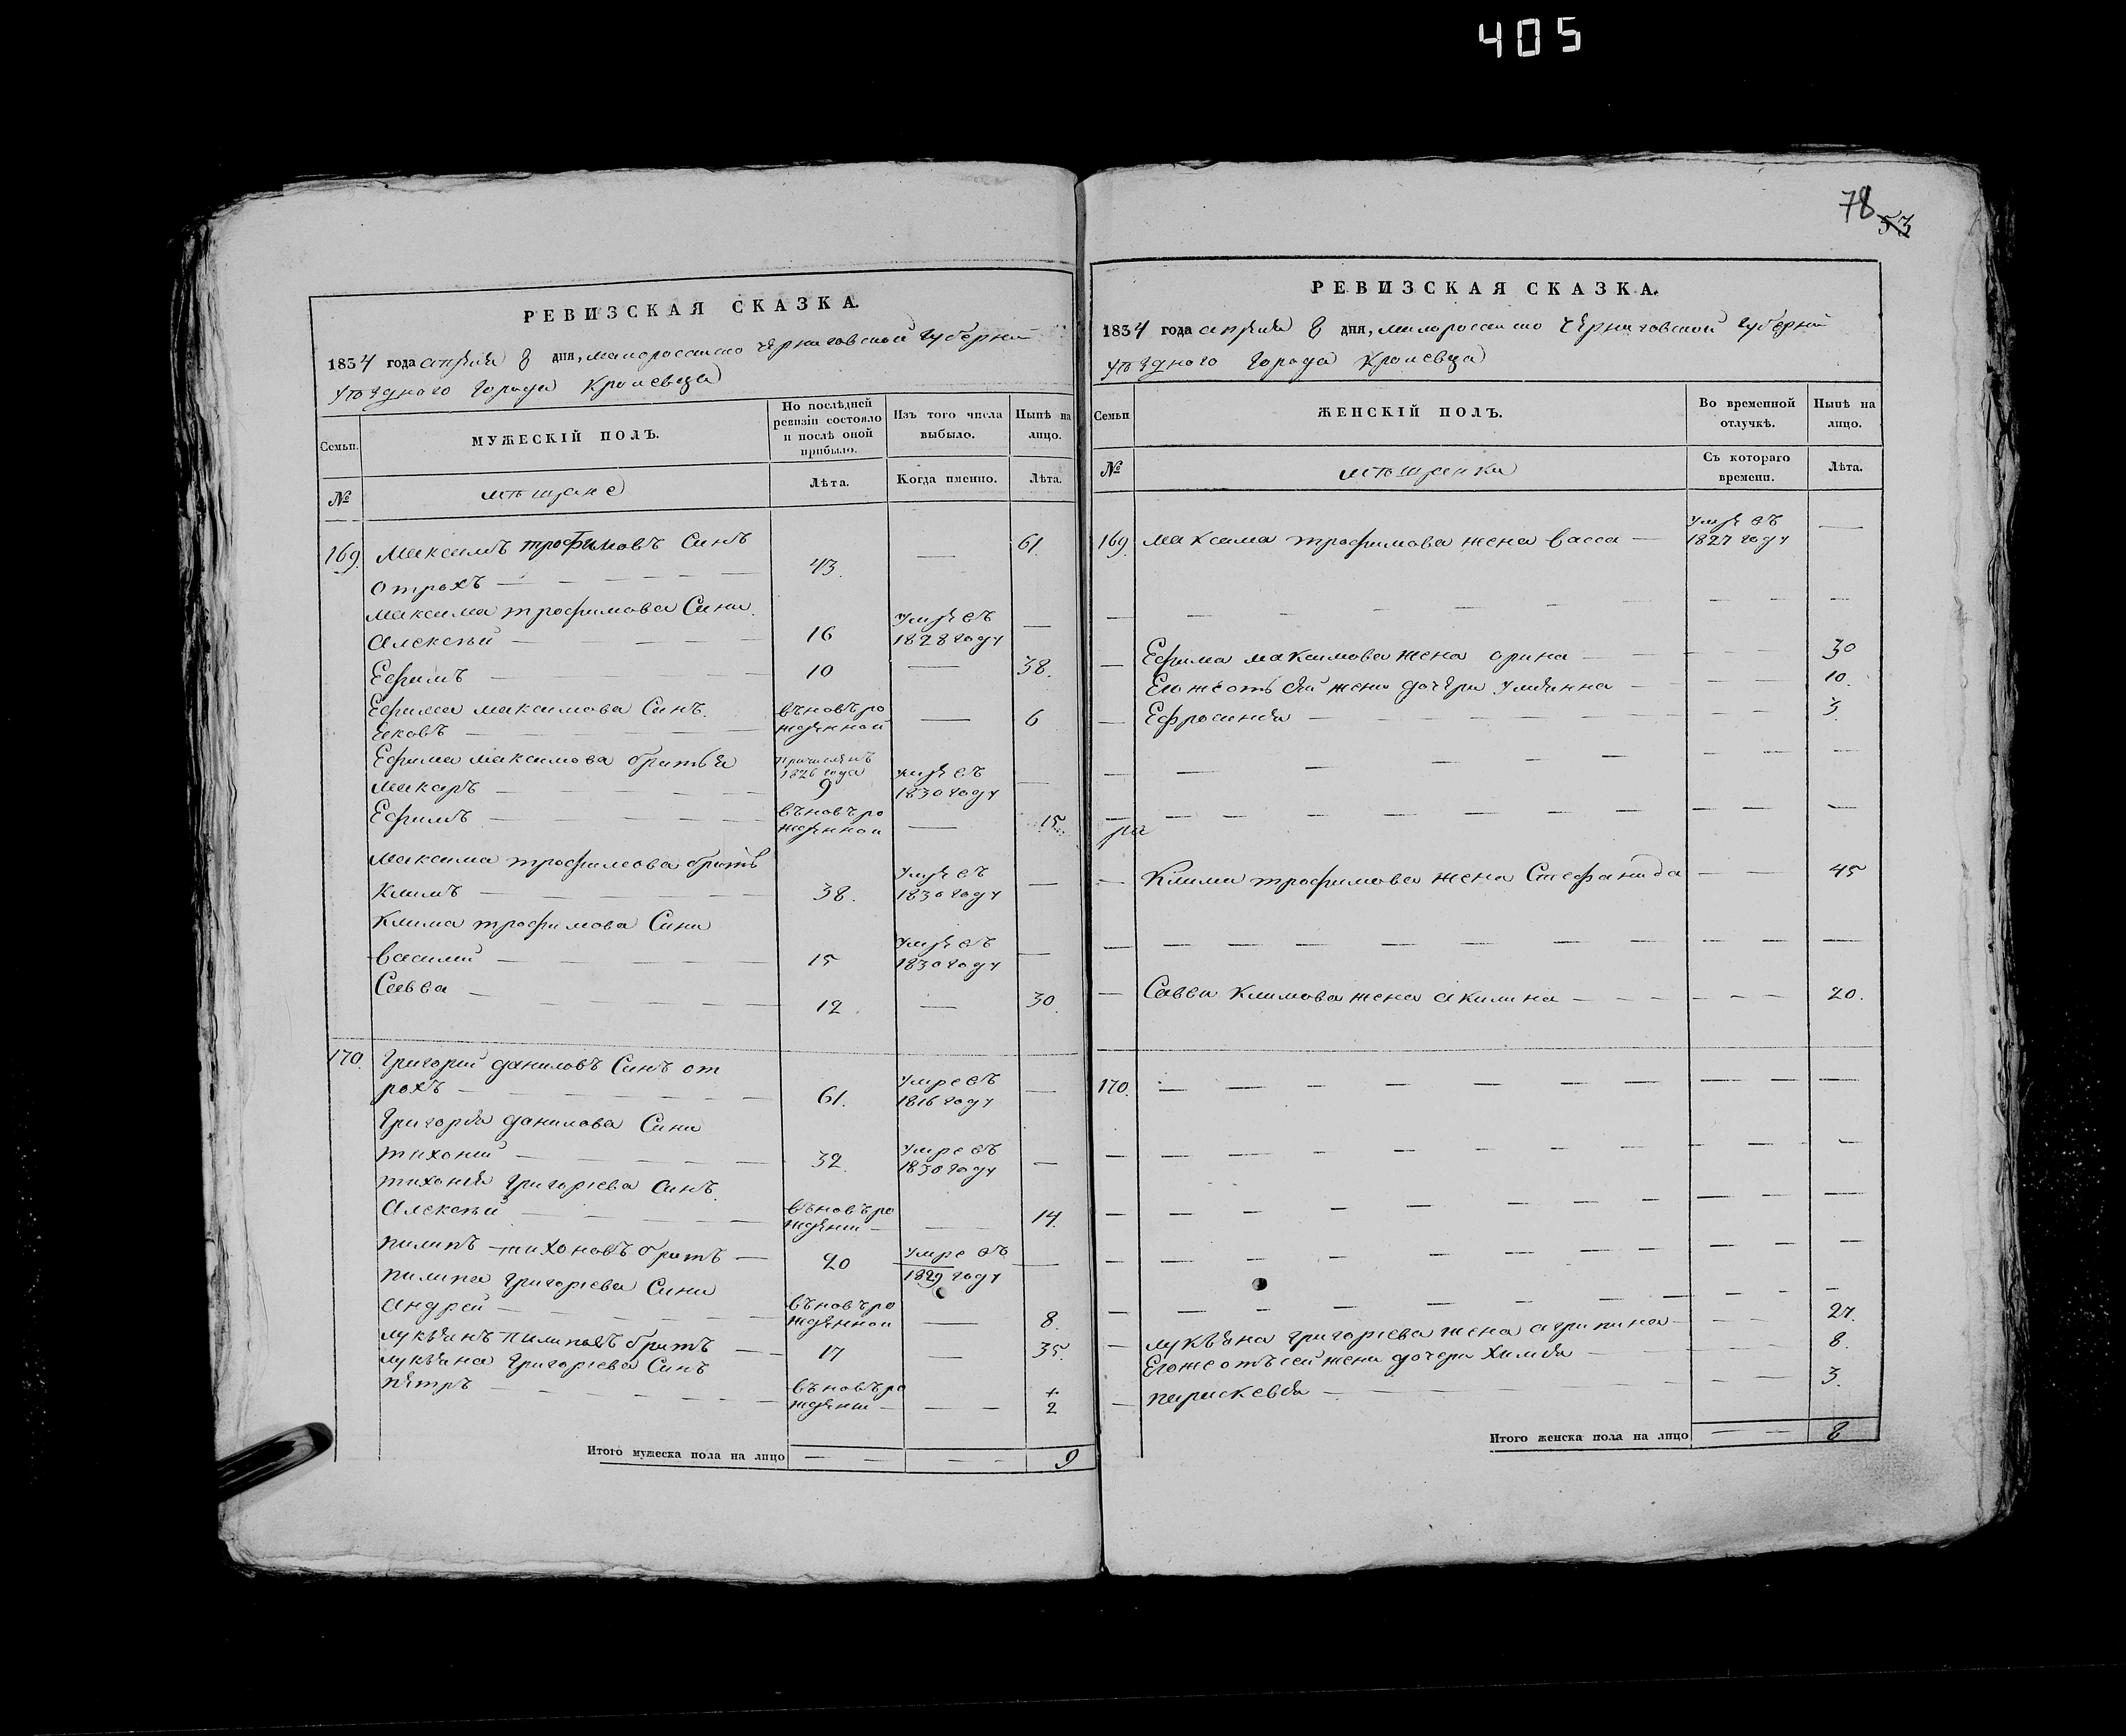 405
78
53
РЕВИЗСКАЯ СКАЗКА.
1834 года апреля 8 дня, малороссийско Черниговской губернии
уъздного города Кролевца
Семьи.
МУЖЕСКІЙ ПОЛЪ.
По послѣдней ревизіи состояло и послѣ оной прибыло.
Изъ того числа выбыло.
Нынѣ на лицо.
№
мъщане
Лѣта.
Когда именно.
Лѣта.
169. Максимъ трофимовъ Синъ
отрохъ — 43. — 61.
Максима трофимова Сини
Алексъй — 16 умре въ 1828 году —
Ефимъ — 10 — 38.
Ефима максимова Синъ
яковъ — въновъ рожденной — 6
Ефима максимова братья
макаръ — причисленъ 1826 года 9 умре въ 1830 году —
Ефимъ — въновъ рожденной — 15
Максима трофимова братъ
Климъ — 38. умре въ 1830 году —
Клима трофимова Сини
василий — 15 умре въ 1830 году —
Савва — 12. — 30.
170. Григорий даниловъ Синъ от
рохъ — 61. умре въ 1816 году —
Григория данилова Сини
тихоний — 32. умре въ 1830 году —
тихония Григориева Синъ
Алексъй — въновъ рождени — 14.
пилипъ тихоновъ братъ — 20 умре въ 1829 году —
пилипа Григориева Сини
андрей — въновъ рожденной — 8.
лукьянъ пилиповъ братъ — 17 — 35.
лукьяна Григориева Синъ
пётръ — въновъ рождени — + 2
Итого мужеска пола на лицо — — 9
РЕВИЗСКАЯ СКАЗКА.
1834 года апреля 8 дня, малороссийско Черниговской губернии
уъздного города Кролевца
Семьи
ЖЕНСКІЙ ПОЛЪ.
Во временной отлучкѣ.
Нынѣ на лицо.
№
мъщанки
Съ котораго времени.
Лѣта.
169. максима трофимова жена васса — умре въ 1827 году —
— Ефима максимова жена орина — 30
Егожеотъ сей жени дочери улиянна — 10.
— Ефросиния — 3.
ра
— Клима трофимова жена Стефанида — 45
— Савви климова жена акилина — 20.
170. —
— лукъяна григориева жена агрипина — 27.
Егожеотъ сей жени дочери Химия — 8.
— параскевия — 3.
Итого женска пола на лицо — — 8